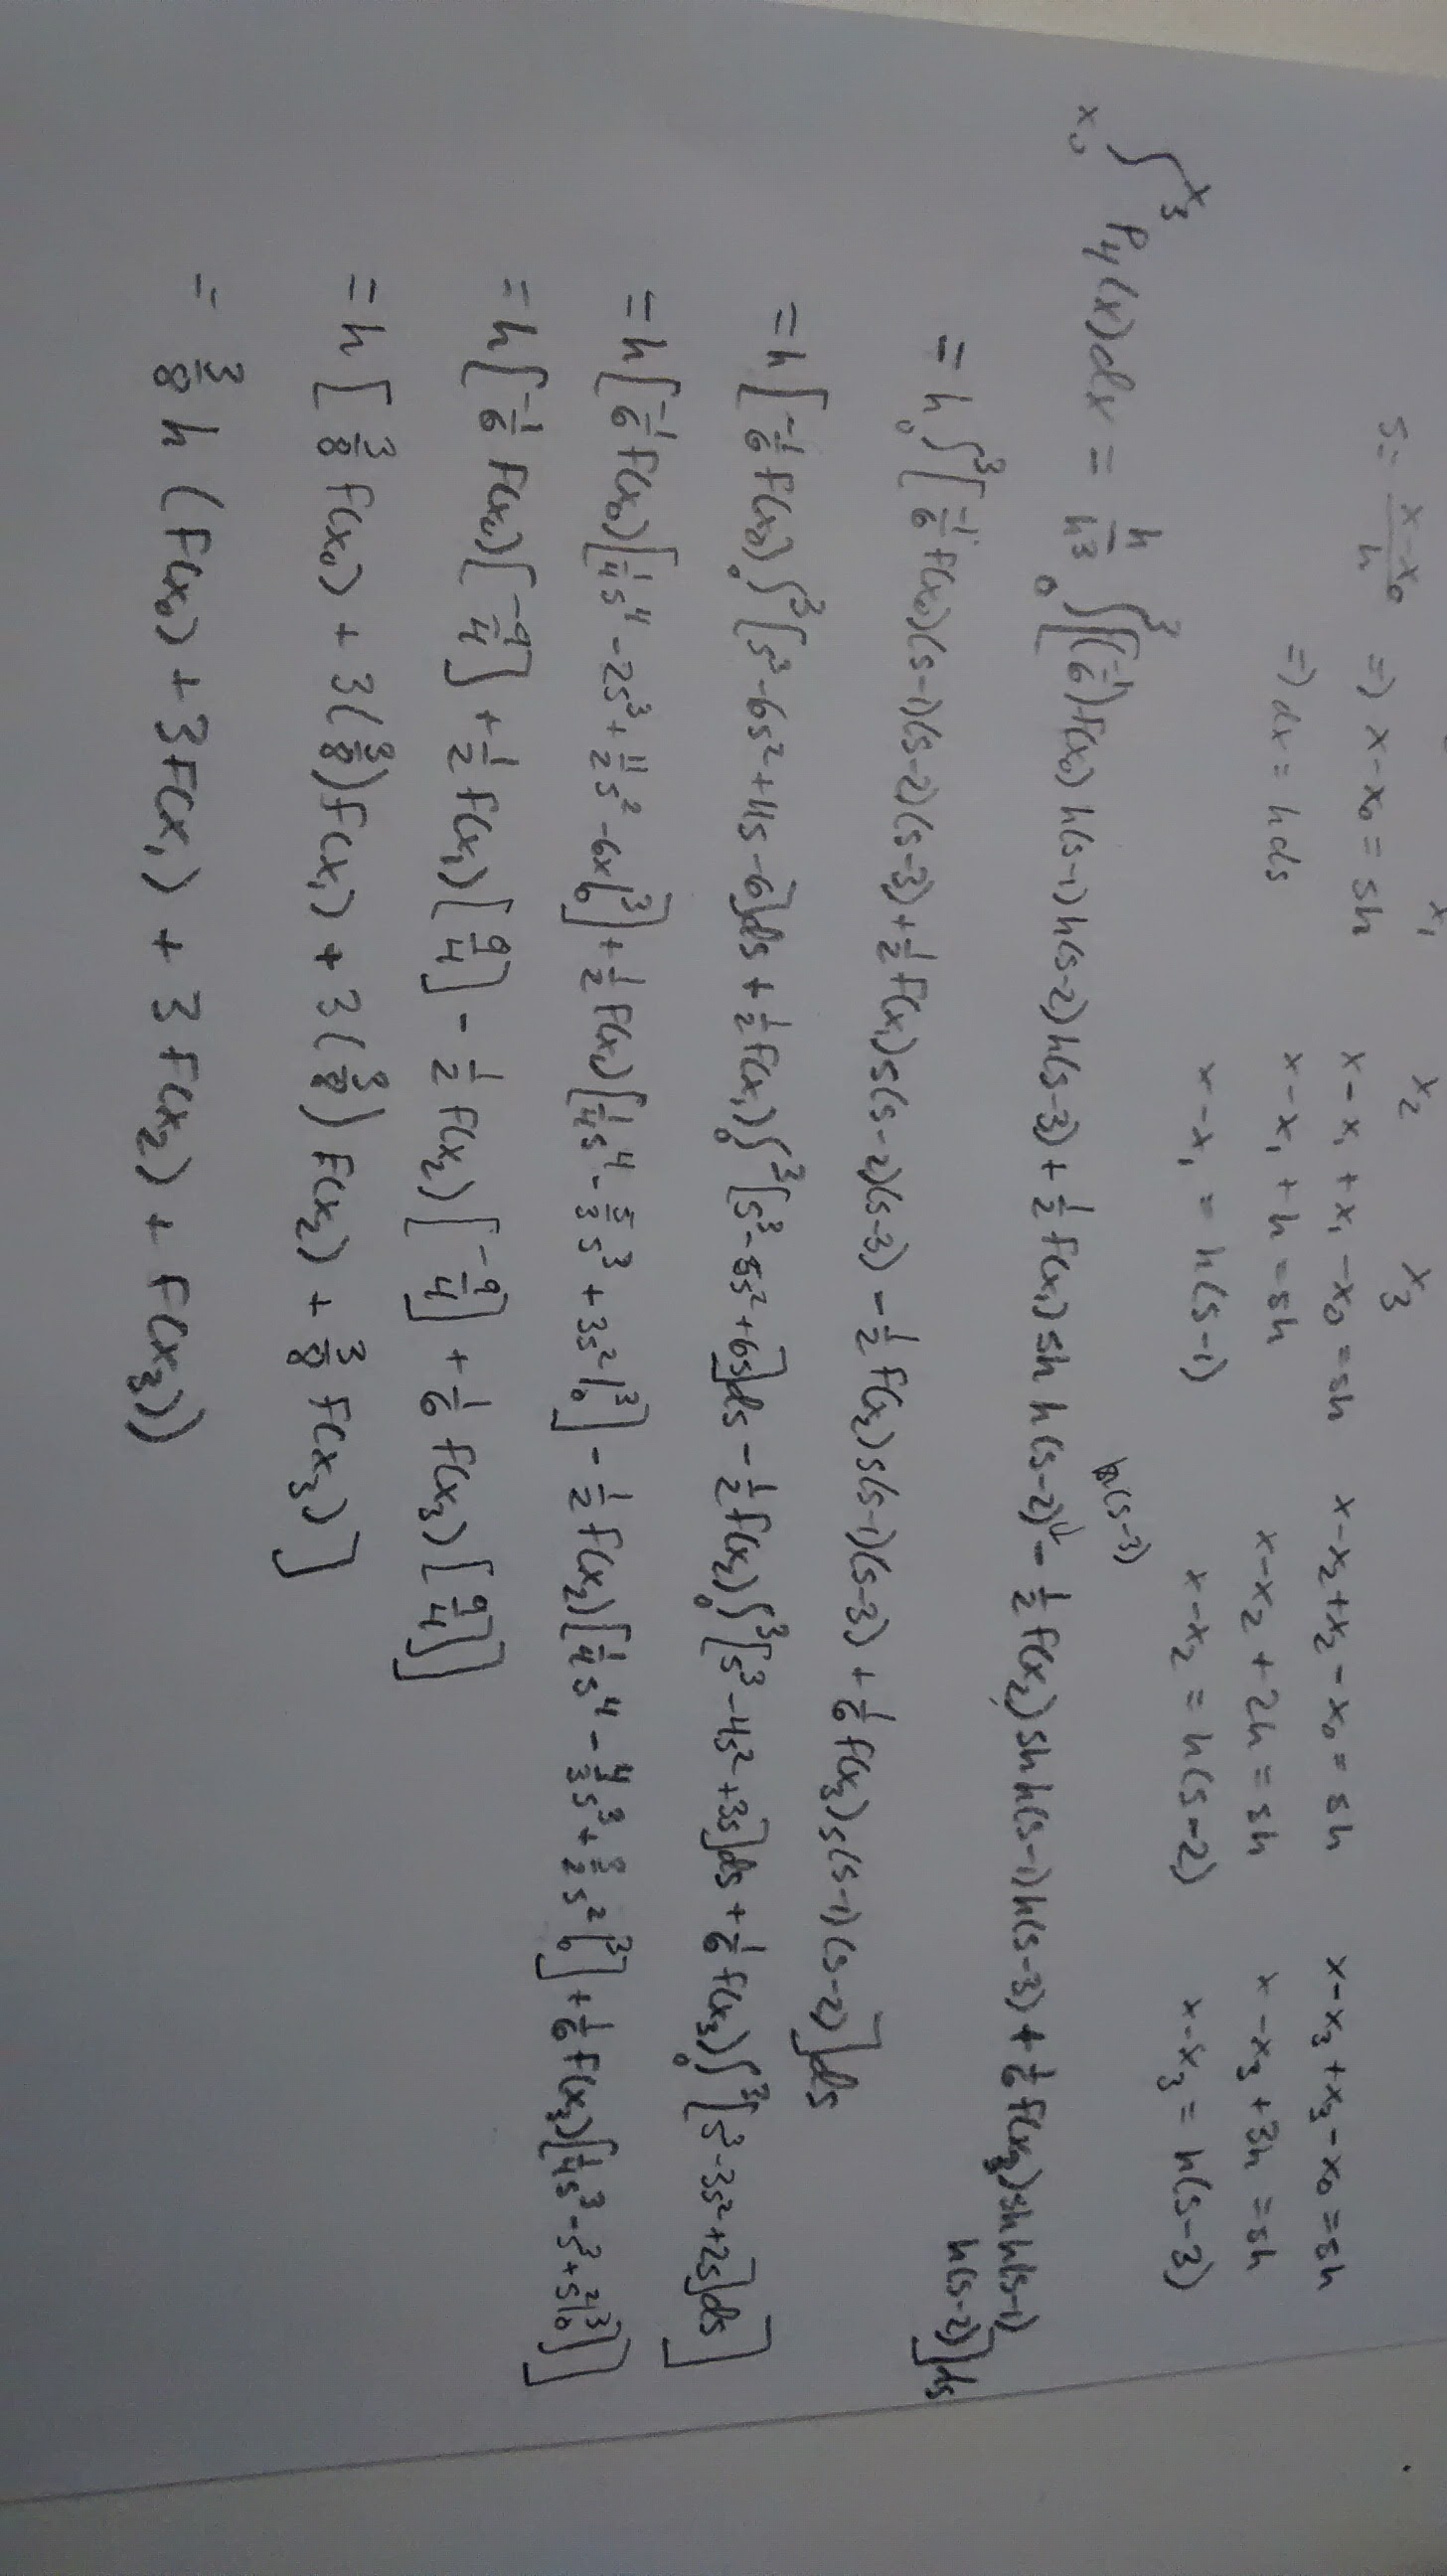 x₁ x₂ x₃
s = (x-x₀)/h ⇒ x-x₀ = sh x-x₁+x₁-x₀ = sh x-x₂+x₂-x₀ = sh x-x₃+x₃-x₀ = sh
⇒ dx = hds x-x₁+h = sh x-x₂+2h = sh x-x₃+3h = sh
x-x₁ = h(s-1) x-x₂ = h(s-2) x-x₃ = h(s-3)
∫_{x₀}^{x₃} P₄(x)dx = h/h³ ∫₀³ [(-1/6)f(x₀)h(s-1)h(s-2)h(s-3) + 1/2 f(x₁)sh h(s-2)h(s-3) - 1/2 f(x₂)sh h(s-1)h(s-3) + 1/6 f(x₃)sh h(s-1)h(s-2)]ds
= h ∫₀³ [-1/6 f(x₀)(s-1)(s-2)(s-3) + 1/2 f(x₁)s(s-2)(s-3) - 1/2 f(x₂)s(s-1)(s-3) + 1/6 f(x₃)s(s-1)(s-2)]ds
= h[-1/6 f(x₀) ∫₀³ [s³-6s²+11s-6]ds + 1/2 f(x₁) ∫₀³ [s³-5s²+6s]ds - 1/2 f(x₂) ∫₀³ [s³-4s²+3s]ds + 1/6 f(x₃) ∫₀³ [s³-3s²+2s]ds]
= h[-1/6 f(x₀)[1/4 s⁴ - 2s³ + 11/2 s² - 6x|₀³] + 1/2 f(x₁)[1/4 s⁴ - 5/3 s³ + 3s²|₀³] - 1/2 f(x₂)[1/4 s⁴ - 4/3 s³ + 3/2 s²|₀³] + 1/6 f(x₃)[1/4 s³ - s³ + s²|₀³]]
= h[-1/6 f(x₀)[-9/4] + 1/2 f(x₁)[9/4] - 1/2 f(x₂)[-9/4] + 1/6 f(x₃)[9/4]]
= h[3/8 f(x₀) + 3(3/8)f(x₁) + 3(3/8)f(x₂) + 3/8 f(x₃)]
= 3/8 h (f(x₀) + 3f(x₁) + 3f(x₂) + f(x₃))